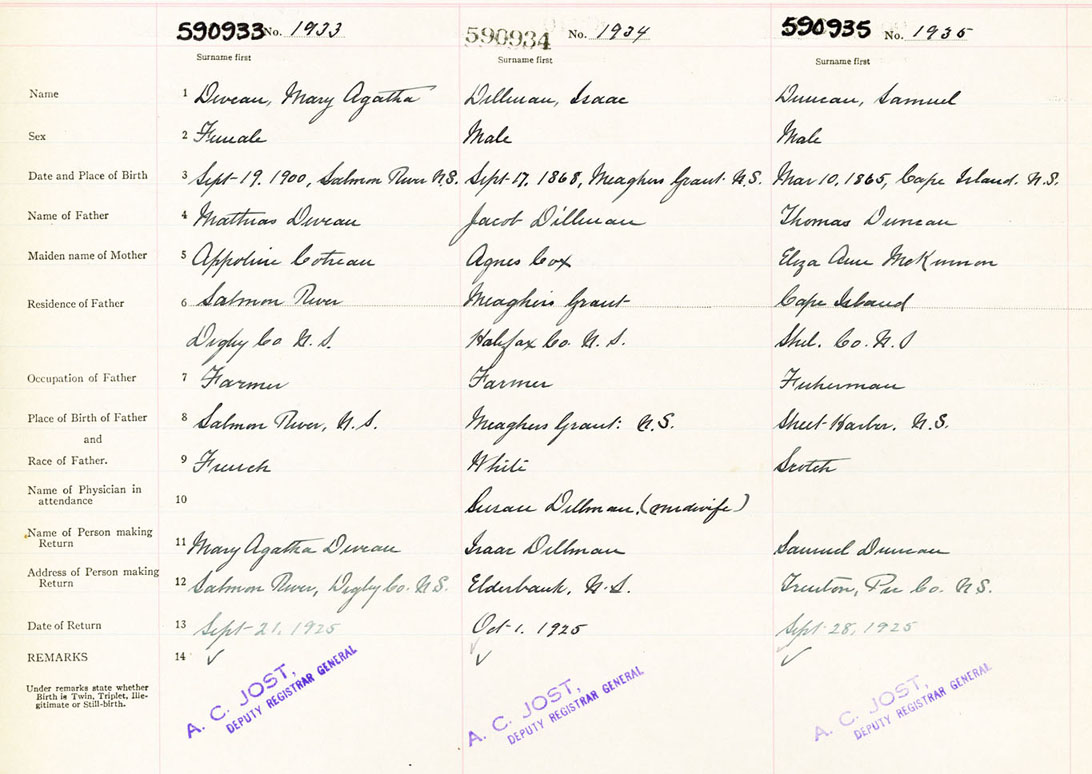 590933 No. 1933 590934 No. 1934 590935 No. 1935
Surname first Surname first Surname first
Name 1 Deveau, Mary Agatha Dillman, Isaac Duncan, Samuel
Sex 2 Female Male Male
Date and Place of Birth 3 Sept 19. 1900, Salmon River N.S. Sept 17, 1868, Meaghers Grant N.S. Mar 10, 1865, Cape Island. N.S.
Name of Father 4 Mathias Deveau Jacob Dillman Thomas Duncan
Maiden name of Mother 5 Appoline Cotreau Agnes Cox Eliza Ann McKinnon
Residence of Father 6 Salmon River Meaghers Grant Cape Island
Digby Co N.S. Halifax Co. N.S. Shel. Co. N.S
Occupation of Father 7 Farmer Farmer Fisherman
Place of Birth of Father 8 Salmon River, N.S. Meaghers Grant. N.S. Sheet Harbor. N.S.
and
Race of Father. 9 French White Scotch
Name of Physician in
attendance 10 Susan Dillman, (midwife)
Name of Person making
Return 11 Mary Agatha Deveau Isaac Dillman Samuel Duncan
Address of Person making
Return 12 Salmon River, Digby Co. N.S. Elderbank, N.S. Trenton, Co. N.S.
Date of Return 13 Sept 21, 1925 Oct 1. 1925 Sept 28, 1925
REMARKS 14 ✓ ✓ ✓
Under remarks state whether
Birth is Twin, Triplet, Ille-
gitimate or Still-birth.
A. C. JOST, A. C. JOST, A. C. JOST,
DEPUTY REGISTRAR GENERAL DEPUTY REGISTRAR GENERAL DEPUTY REGISTRAR GENERAL